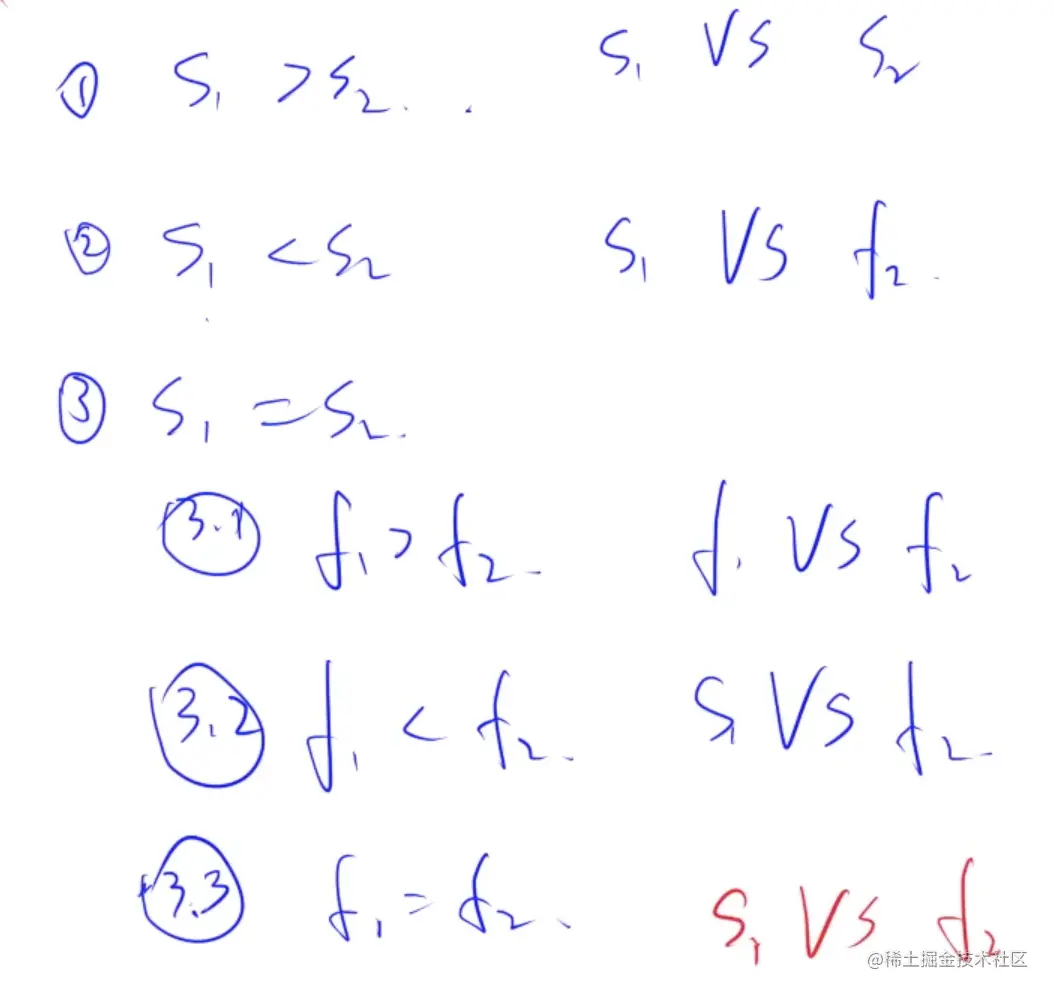 ① S₁ > S₂. . S₁ VS S₂
② S₁ < S₂ S₁ VS f₂.
③ S₁ = S₂.
3.1 f₁ > f₂. f₁ VS f₂
3.2 f₁ < f₂. S₁ VS f₂
3.3 f₁ = f₂. S₁ VS f₂
@稀土掘金技术社区